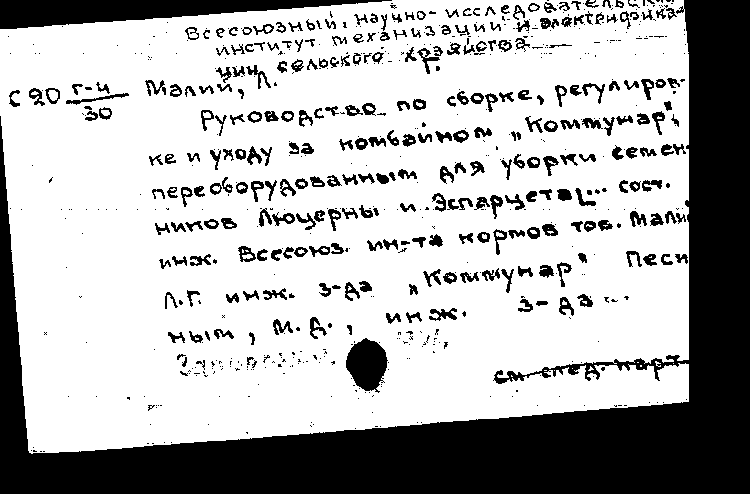 Всесоюзный, научно-исследовательский
институт механизации и электрифика-
ции сельского хозяйства
С 20 г-4/30 Малий, Л. Г.
Руководство по сборке, регулиров-
ке и уходу за комбайном „Коммунар",
переоборудованным для уборки семен-
ников Люцерны и Эспарцета[... сост.
инж. Всесоюз. ин-та кормов тов. Малий
Л.Г. инж. з-да „Коммунар" Песи
ным, М.Д., инж. з-да ...
см. след. карт.